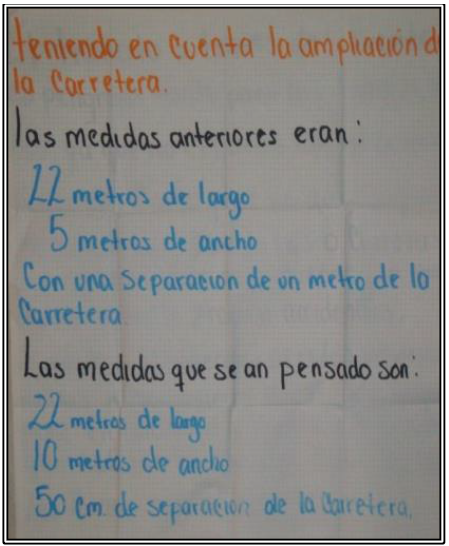 teniendo en cuenta la ampliación d
la Carretera.
las medidas anteriores eran:
22 metros de largo
5 metros de ancho
Con una separacion de un metro de la
Carretera
Las medidas que se an pensado son:
22 metros de largo
10 metros de ancho
50 cm. de separacion de la Carretera.